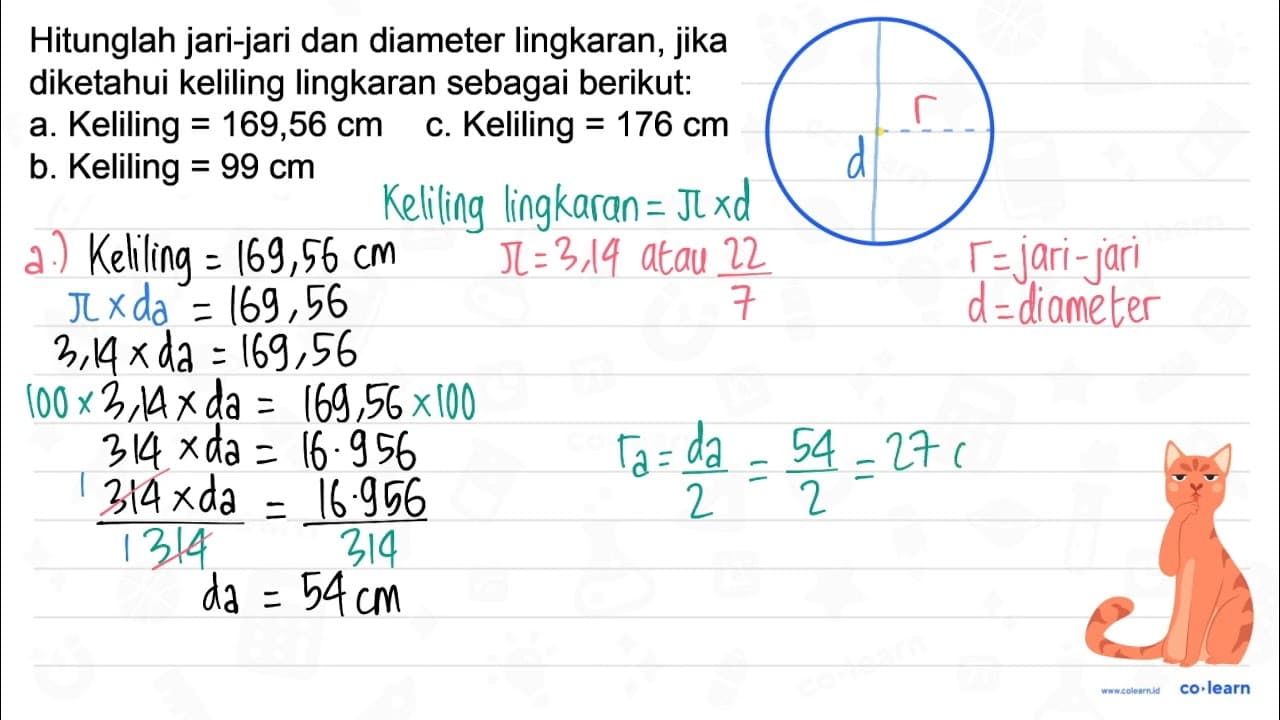 Hitunglah jari-jari dan diameter lingkaran, jika
diketahui keliling lingkaran sebagai berikut:
a. Keliling = 169,56 cm c. Keliling = 176 cm
b. Keliling = 99 cm
r
d
Keliling lingkaran = π × d
π = 3,14 atau 22/7
r = jari-jari
d = diameter
a.) Keliling = 169,56 cm
π × da = 169,56
3,14 × da = 169,56
100 × 3,14 × da = 169,56 × 100
314 × da = 16.956
1 314 × da / 1 314 = 16.956 / 314
da = 54 cm
ra = da/2 = 54/2 = 27 c
www.colearn.id co·learn